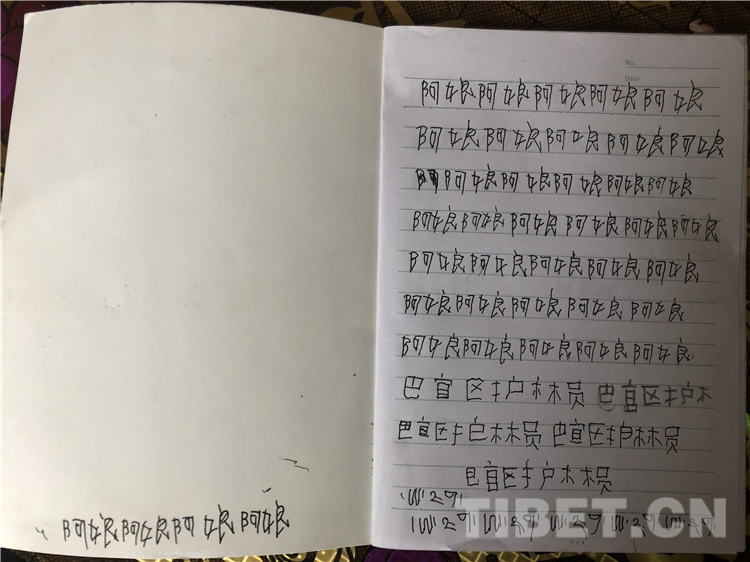 阿娘阿娘阿娘阿娘
No.
Date
阿娘阿娘阿娘阿娘阿娘
阿娘阿娘阿娘阿娘阿娘
阿娘阿娘阿娘阿娘阿娘
阿娘阿娘阿娘阿娘阿娘阿娘
阿娘阿娘阿娘阿娘阿娘
阿娘阿娘阿娘阿娘阿娘
阿娘阿娘阿娘阿娘阿娘
巴宜区护林员 巴宜区护林
巴宜区护林员 巴宜区护林员
巴宜区护林员
TIBET.CN